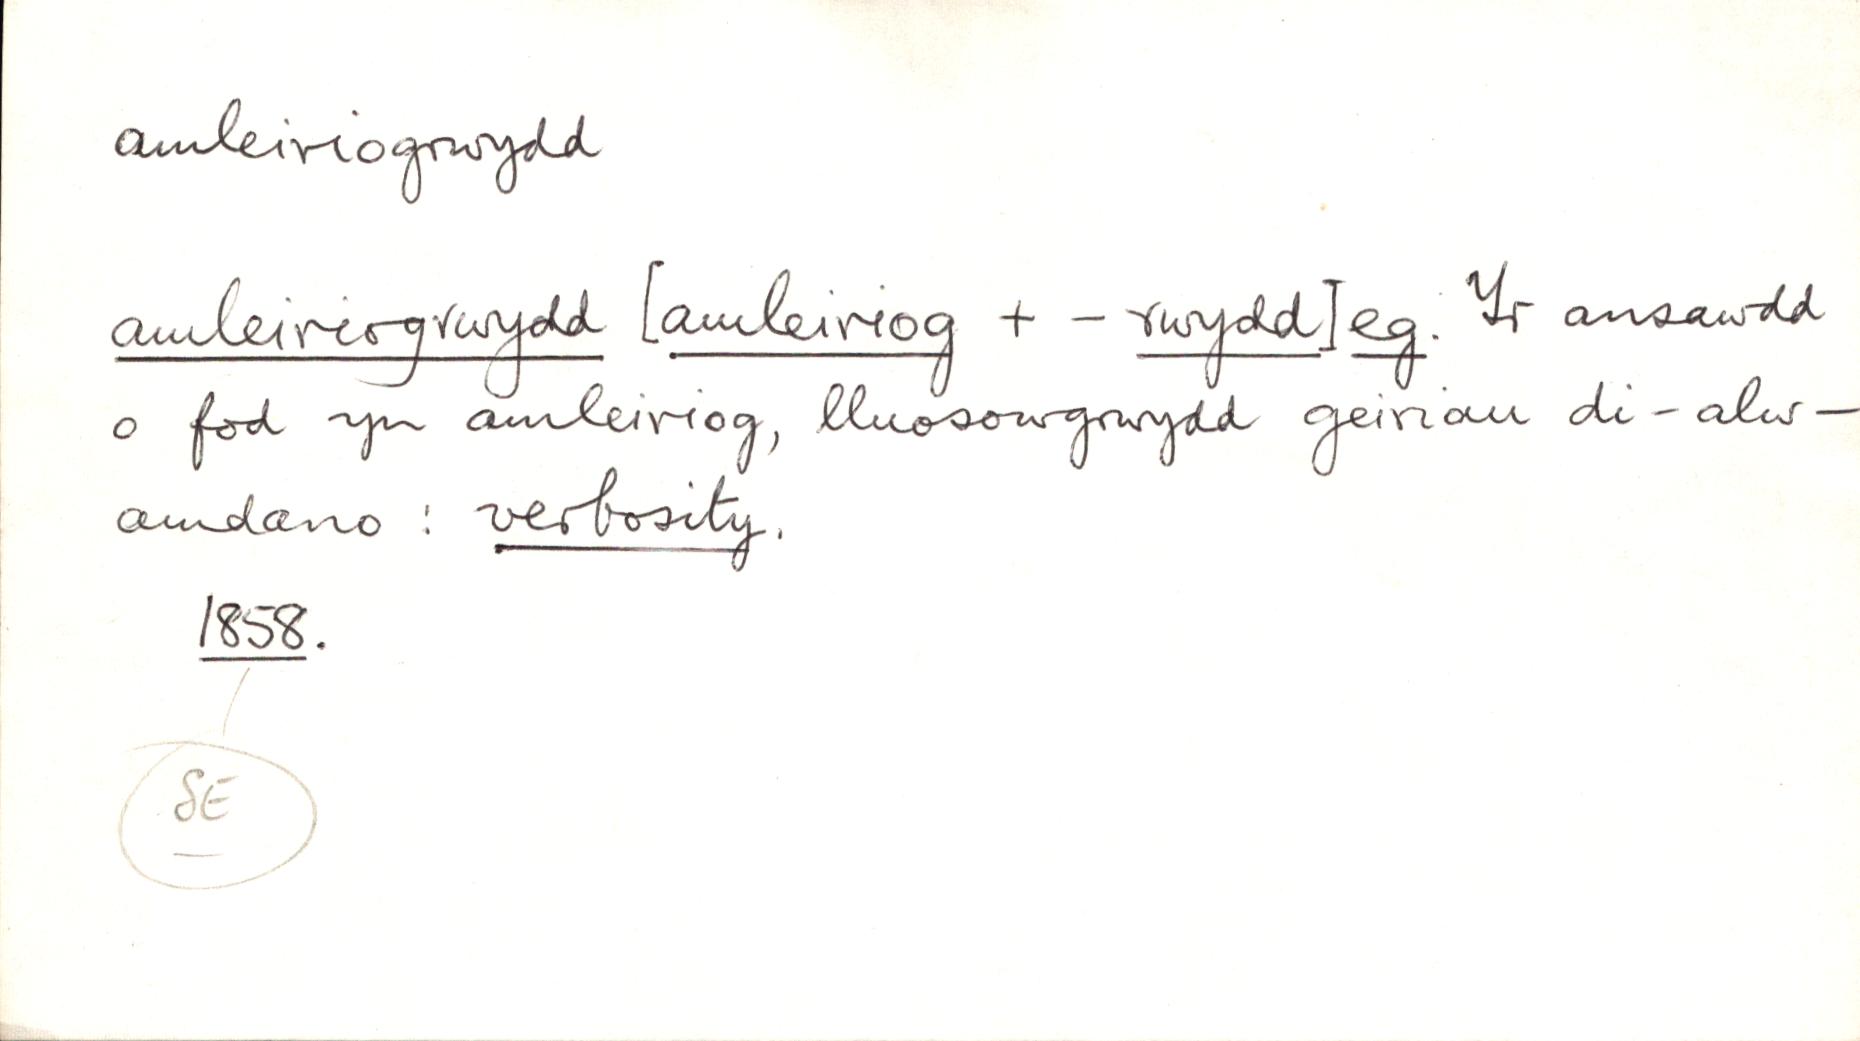 amleiriogrwydd
amleiriogrwydd [amleiriog + -rwydd] eg. Yr ansawdd
o fod yn amleiriog, lluosowgrwydd geiriau di-alw-
amdano : verbosity.
1858.
SE